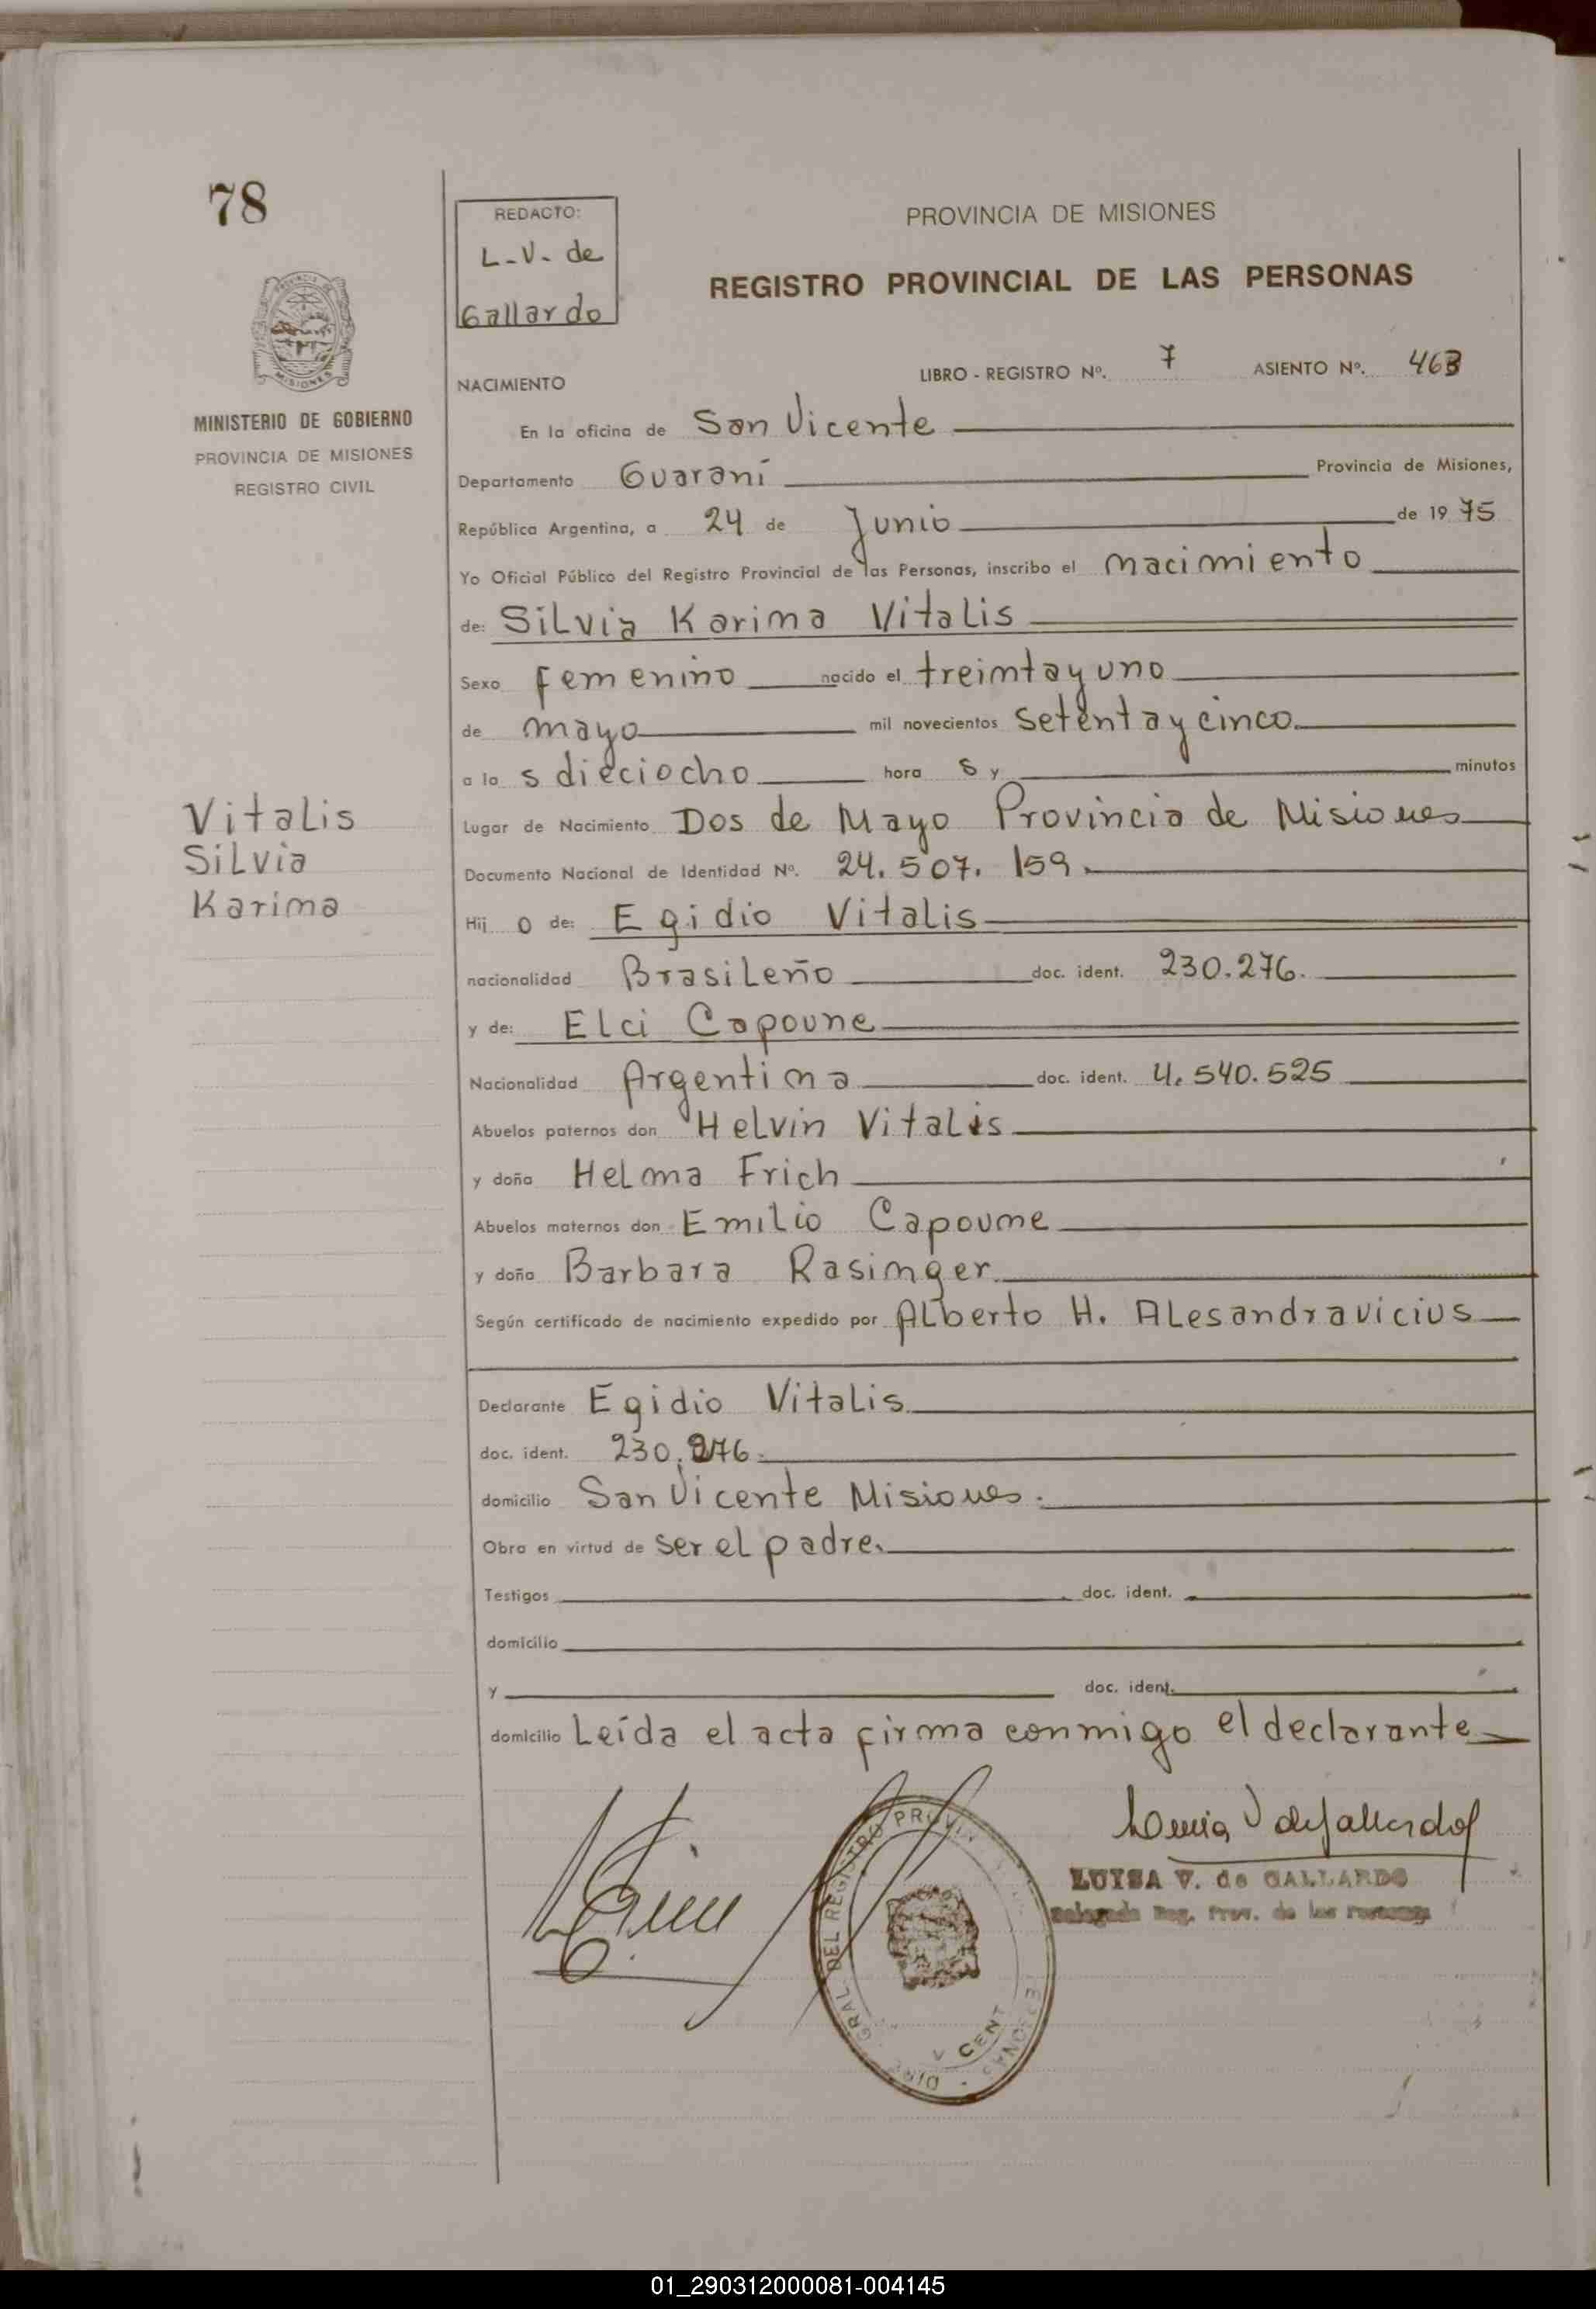 78
REDACTO:
L-V- de
Gallardo
PROVINCIA DE MISIONES
REGISTRO PROVINCIAL DE LAS PERSONAS
MISIONES
MINISTERIO DE GOBIERNO
PROVINCIA DE MISIONES
REGISTRO CIVIL
NACIMIENTO
LIBRO - REGISTRO Nº. 7 ASIENTO Nº. 463
En la oficina de San Vicente
Departamento Guaraní Provincia de Misiones,
República Argentina, a 24 de Junio de 1975
Yo Oficial Público del Registro Provincial de las Personas, inscribo el nacimiento
de: Silvia Karina Vitalis
Sexo femenino nacido el treinta y uno
de mayo mil novecientos setenta y cinco
a las dieciocho horas y minutos
Vitalis
Silvia
Karina
Lugar de Nacimiento Dos de Mayo Provincia de Misiones
Documento Nacional de Identidad Nº. 24.507.159.
Hijo de: Egidio Vitalis
nacionalidad Brasileño doc. ident. 230.276.
y de: Elci Capoune
Nacionalidad Argentina doc. ident. 4.540.525
Abuelos paternos don Helvin Vitalis
y doña Helma Frich
Abuelos maternos don Emilio Capoune
y doña Barbara Rasinger
Según certificado de nacimiento expedido por Alberto H. Alesandravicius
Declarante Egidio Vitalis
doc. ident. 230.276.
domicilio San Vicente Misiones.
Obra en virtud de ser el padre.
Testigos doc. ident.
domicilio
y doc. ident.
domicilio Leída el acta firma conmigo el declarante
LUISA V. de GALLARDO
Delegada Reg. Prov. de las Personas
GRAL. DEL REGISTRO PROVIN
01_290312000081-004145